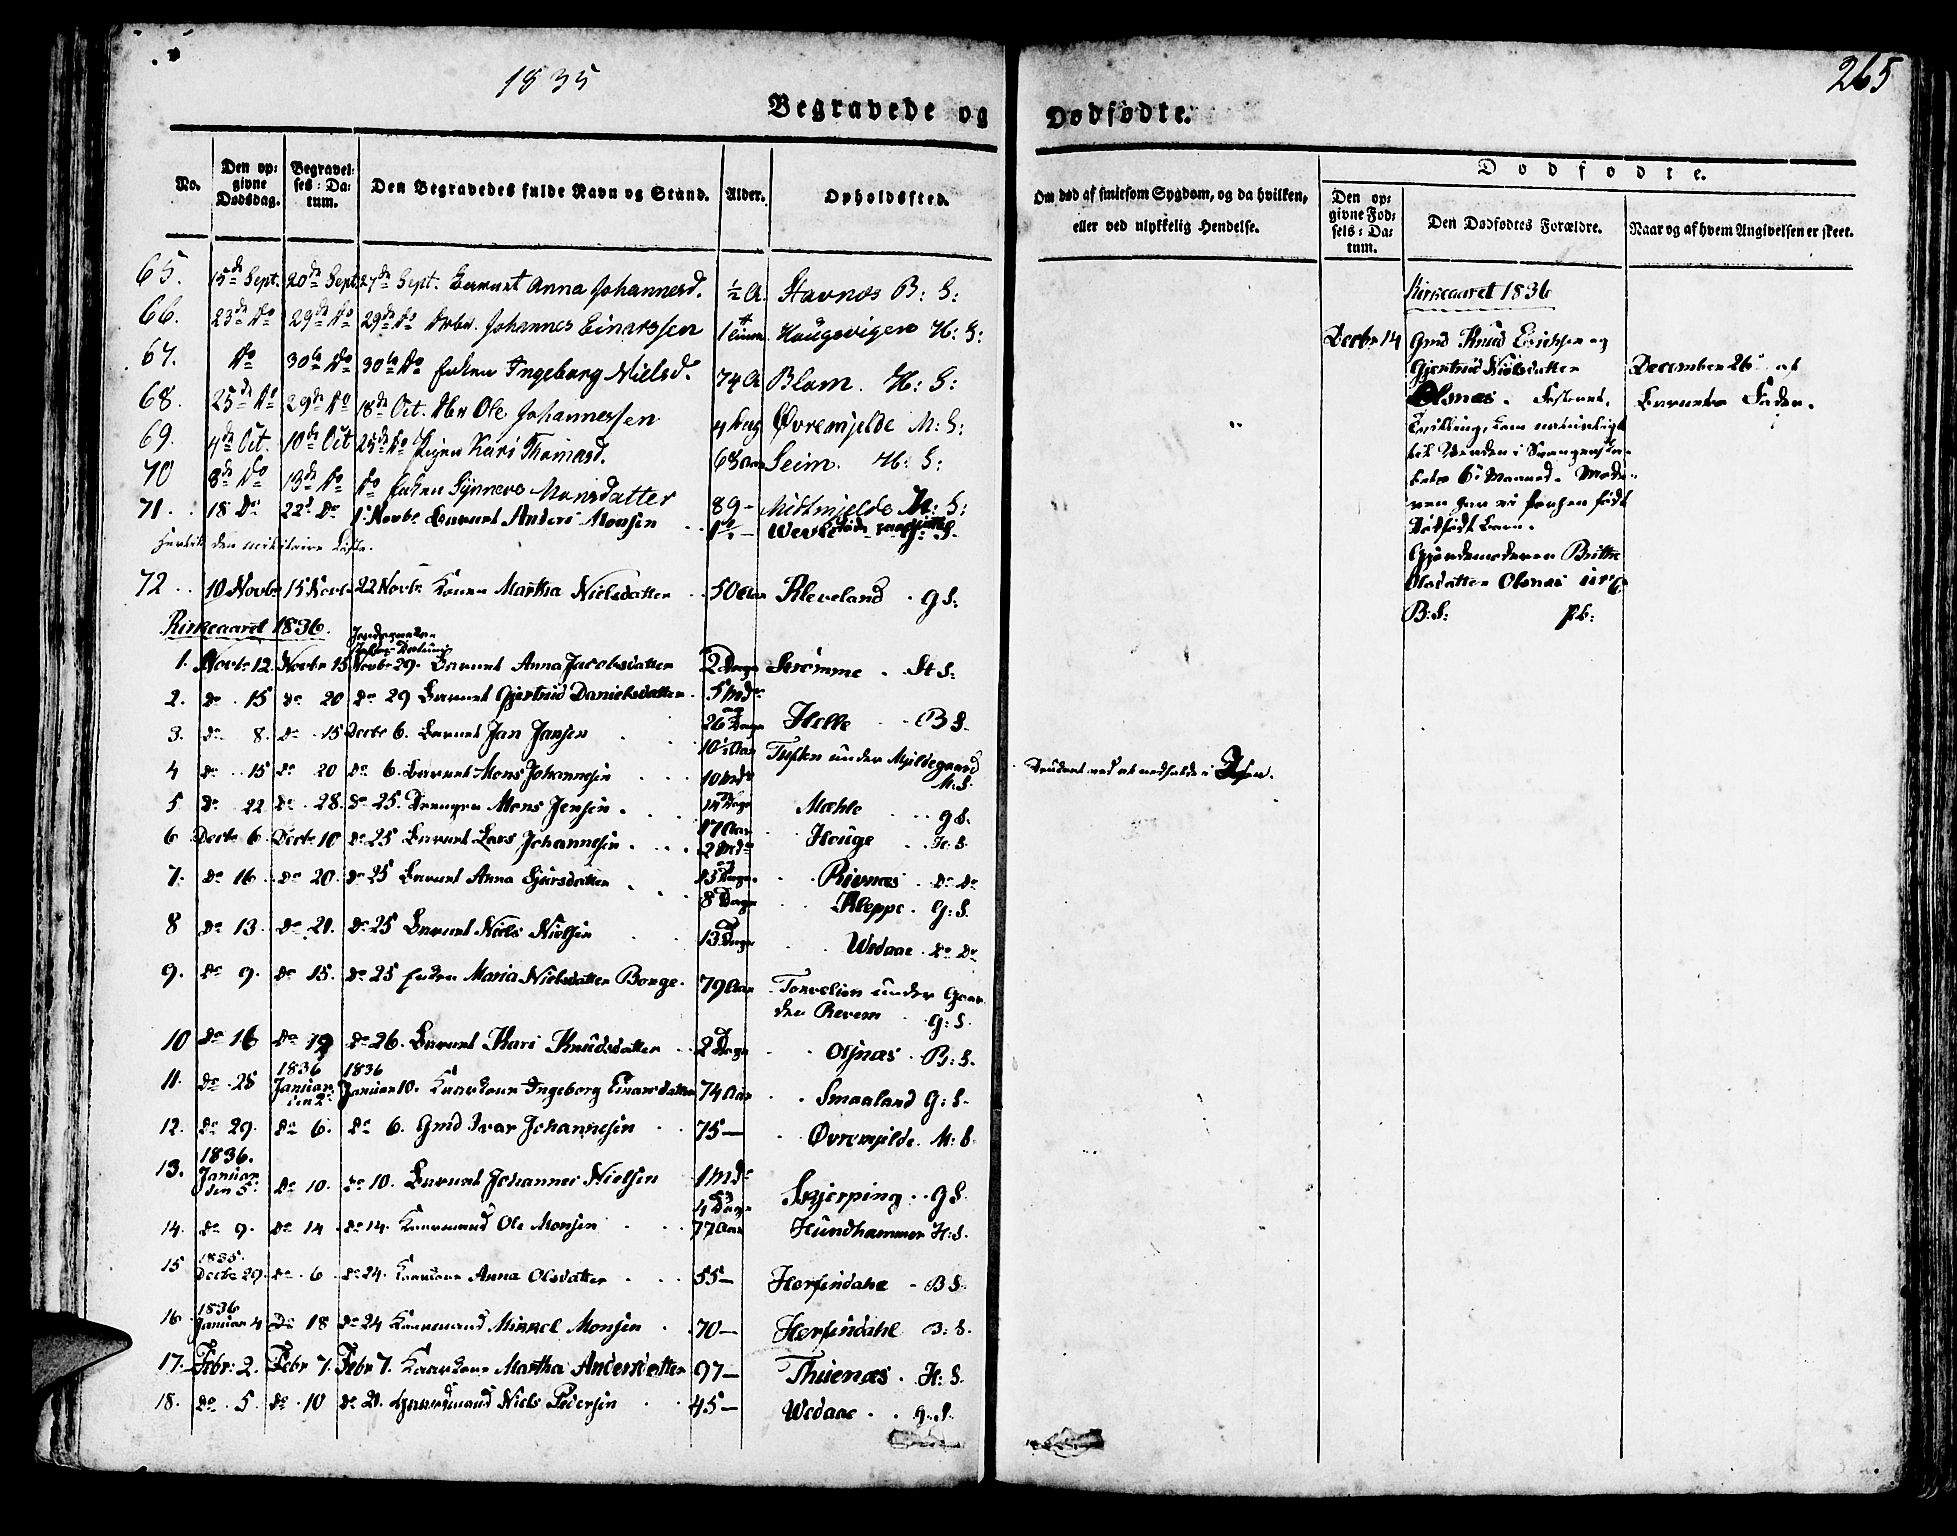 1835
265
Begravede og Dødfødte.
No. Den opgivne Dødsdag. Begravelses-Datum. Den Begravedes fulde Navn og Stand. Alder. Opholdssted. Om død af smitsom Sygdom, og da hvilken, eller ved ulykkelig Hendelse.
Dødfødte.
Den opgivne Fødsels-Datum. Den Dødfødtes Forældre. Naar og af hvem Angivelsen er skeet.
65. 15de Sept. 20de Sept. 27de Sept. Barnet Anna Johannesd. ½ A. Stavnæs B: S:
66. 23de Do 29de Do 29de Do Johannes Einarssen Haugsvigen H: S:
67. Do 30te Do 30te Do Enken Ingeborg Nielsd. 74 A Blom. H: S:
68. 25de Do 29de Do 18de Oct. Ole Johannessen Øvremjelde M: S:
69. 4de Oct. 10de Oct 25de Do Pigen Kari Thomasd. 68 Aar Seim. H: S:
70 8de Do 13de Do Do Enken Synneve Monsdatter 89 - Midtmjelde M: S:
71. 18 Do 22d Do 1 Novbr Barnet Anders Monsen
den militaire Liste.
72 10 Novbr 15 Novbr 22 Novbr Konen Martha Nielsdatter 50 Aar Kleveland G S:
Kirkeaaret 1836.
1. Novbr 12. Novbr 15 Novbr 29. Barnet Anna Jacobsdatter 2 Dage Strømme. St S:
2. Do 15 Do 20 Do 29 Barnet Gjertrud Danielsdatter. 5 Mdr og 26 Dage Helle B S.
3. Do 8. Do 15 Decbr 6. Barnet Jan Jansen 10½ Aar Tuften under Mjeldegaard M. S. Druknet ved at nedfalde i
4 Do 15 Do 20 Do 6. Barnet Mons Johannesen 10 Mdr 14 Dage Mæhle G S.
5 Do 22 Do 28. Do 25. Drengen Mons Jensen. 17 Aar Houge H. S.
6 Decbr 6. Decbr 10 Do 25 Barnet Lars Johannesen. 2 Mdr og 15 Dage Rivnæs Do Do
7. Do 16 Do 20. Do 25 Barnet Anna Sjursdatter 8 Dage Kleppe. G: S.
8 Do 13. Do 20. Do 25 Barnet Niels Nielsen 13 Dage Wedaae. Do Do
9. Do 9. Do 15. Do 25 Enken Maria Nielsdatter Borge. 79 Aar under Gaarden Revem G: S.
10 Do 16 Do 19 Do 26. Barnet Kari Knudsdatter 2 Dage Olsnæs. B: S.
11. Do 25 1836 Januar den 2 1836 Januar 10. Kaarkone Ingeborg Einarsdatter 74 Aar Smaaland G: S.
12. Do 29. Do 6. Do 6. Gmd Ivar Johannesen 75 — Øvremjelde. M: S.
13. 1836. Januar den 5. Do 10. Do 10. Barnet Johannes Nielsen 1 Md og 4 Dage Skjerping. G S.
14. Do 9. Do 14 Do 14. Kaarmand Ole Monsen 77 Aar Hundhammer H: S.
15 1835. Decbr 29. Do 6 Do 24. Kaarkone Anna Olsdatter 55 — Herfindahl B S.
16 1836 Januar 4 Do 18 Do 24 Kaarmand Mikkel Monsen 70 — Herfindahl B: S.
17. Febr: 2. Febr 7. Febr 7. Kaarkone Martha Andersdatter 97 — Thuenæs. H: S.
18. Do 5. Do 10 Do 21. Gaardmand Niels Pedersen 45 — Wedaae. G. S.
Kirkeaaret 1836
Decbr 14 Gmd Knud Erichsen og
Gjertrud Nielsdatter December 26 af
Olsnæs. Barnets Fader.
Tvilling, kom
Svangerska-
bets 6te Maaned. Mode-
ren har født
Dødfødt Barn.
Gjordemoderen Britha
Olsdatter Olsnæs
B: S: